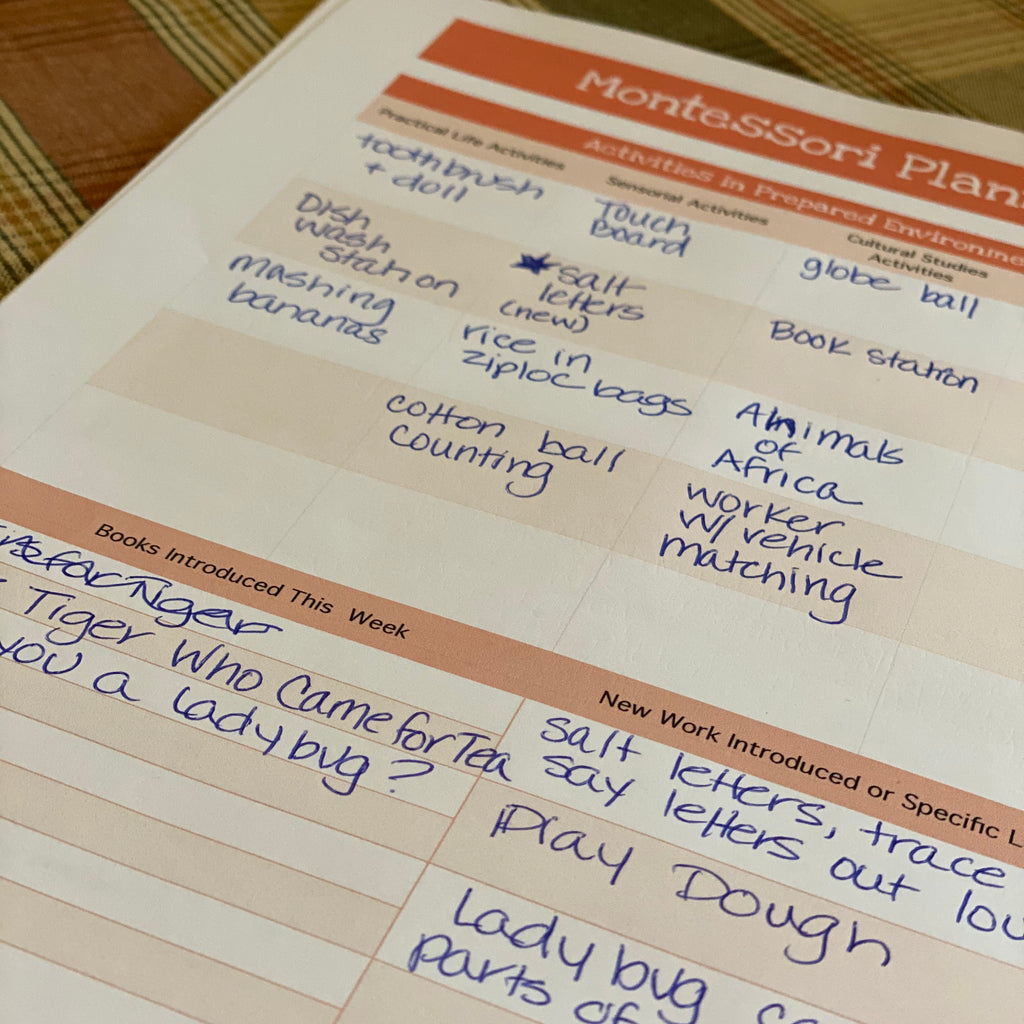 Montessori
Activities in Prepared
Practical Life Activities
Sensorial Activities
Cultural Studies
Activities
toothbrush
+ doll
Dish
wash
station
mashing
bananas
Touch
Board
★ salt
letters
(new)
rice in
ziploc bags
cotton ball
counting
globe ball
Book station
Animals
of
Africa
worker
w/ vehicle
matching
Books Introduced This Week
Tiger Who Came for Tea
you a ladybug?
New Work Introduced or Specific
salt letters, trace
say letters out
Play Dough
Ladybug
parts of